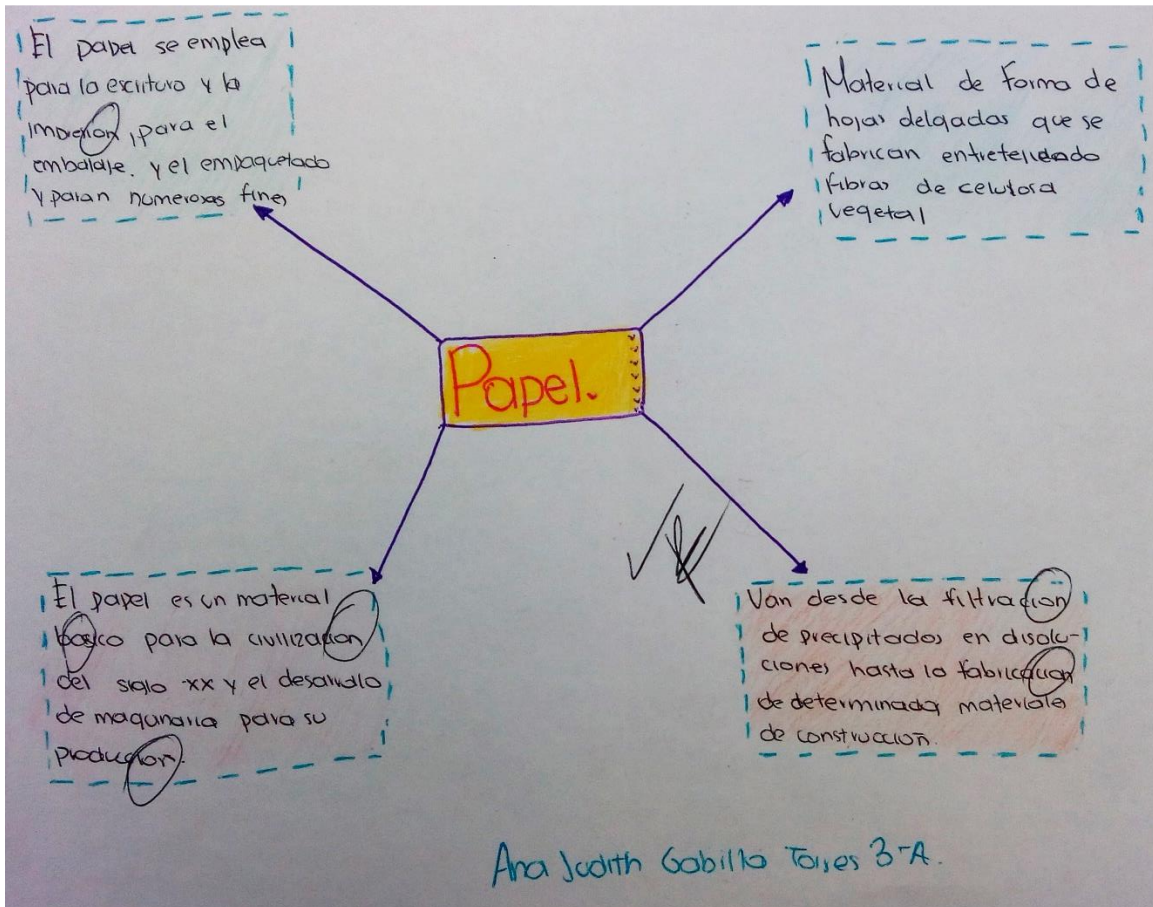 El papel se emplea
para la escritura y la
impresion, para el
embalaje. y el empaquetado
y paran numerosas fines
Material de Forma de
hojas delgadas que se
fabrican entreteliendo
fibras de celulosa
vegetal
Papel.
El papel es un material
basico para la civilizacion
del siglo xx y el desarrollo
de maqunaria para su
produccion.
Van desde la filtracion
de precipitados en disolu-
ciones hasta la fabricacion
de determinada, materiale
de construccion.
Ana Judith Gabilla Torres 3-A.